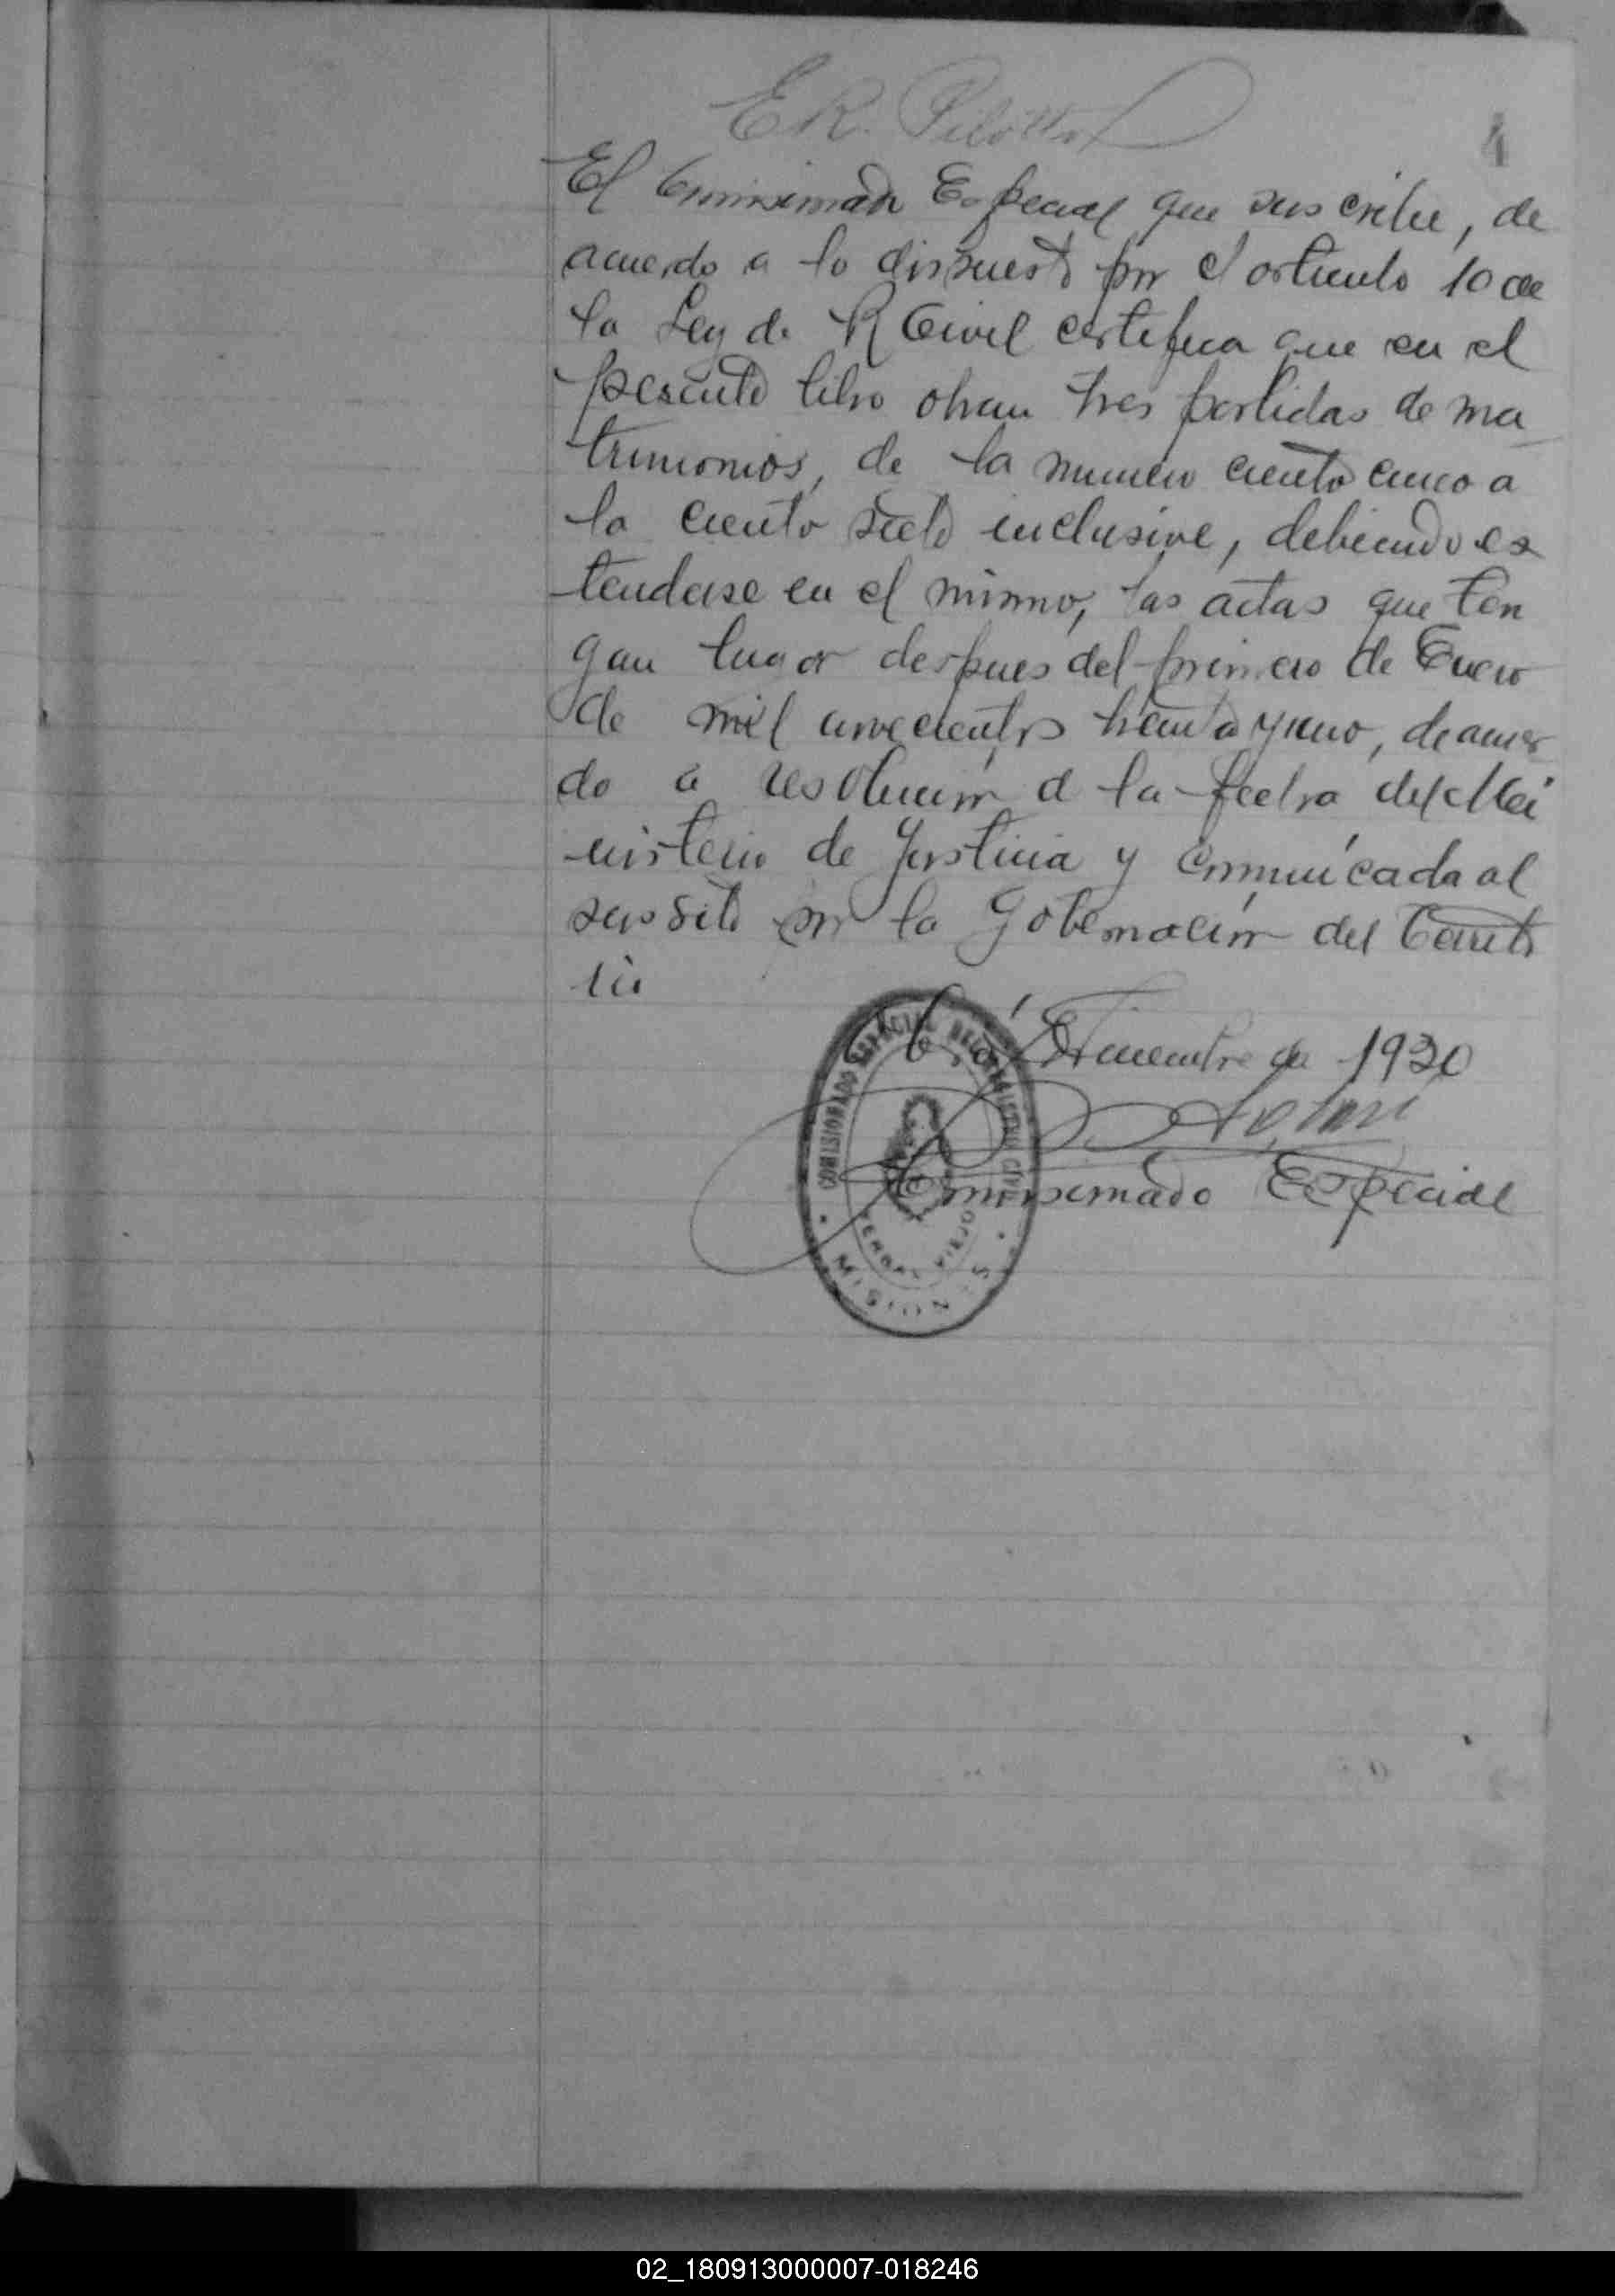 E R. Pilotto
4
El Comisionado Especial que suscribe, de
acuerdo a lo dispuesto por el articulo 10 de
la Ley de R Civil certifica que en el
presente libro obran tres partidas de ma
trimonios, de la numero ciento cinco a
la ciento siete inclusive, debiendo es
tenderse en el mismo, las actas que ten
gan lugar despues del primero de Enero
de mil novecientos treinta y uno, de acuer
do a resolución d la fecha del Mi
nisterio de Justicia y comunicada al
suscrito por la Gobernación del Territo
rio
Diciembre de 1930
Comisionado Especial
COMISIONADO ESPECIAL DEL REGISTRO CIVIL
YERBAL VIEJO
MISIONES
02_180913000007-018246